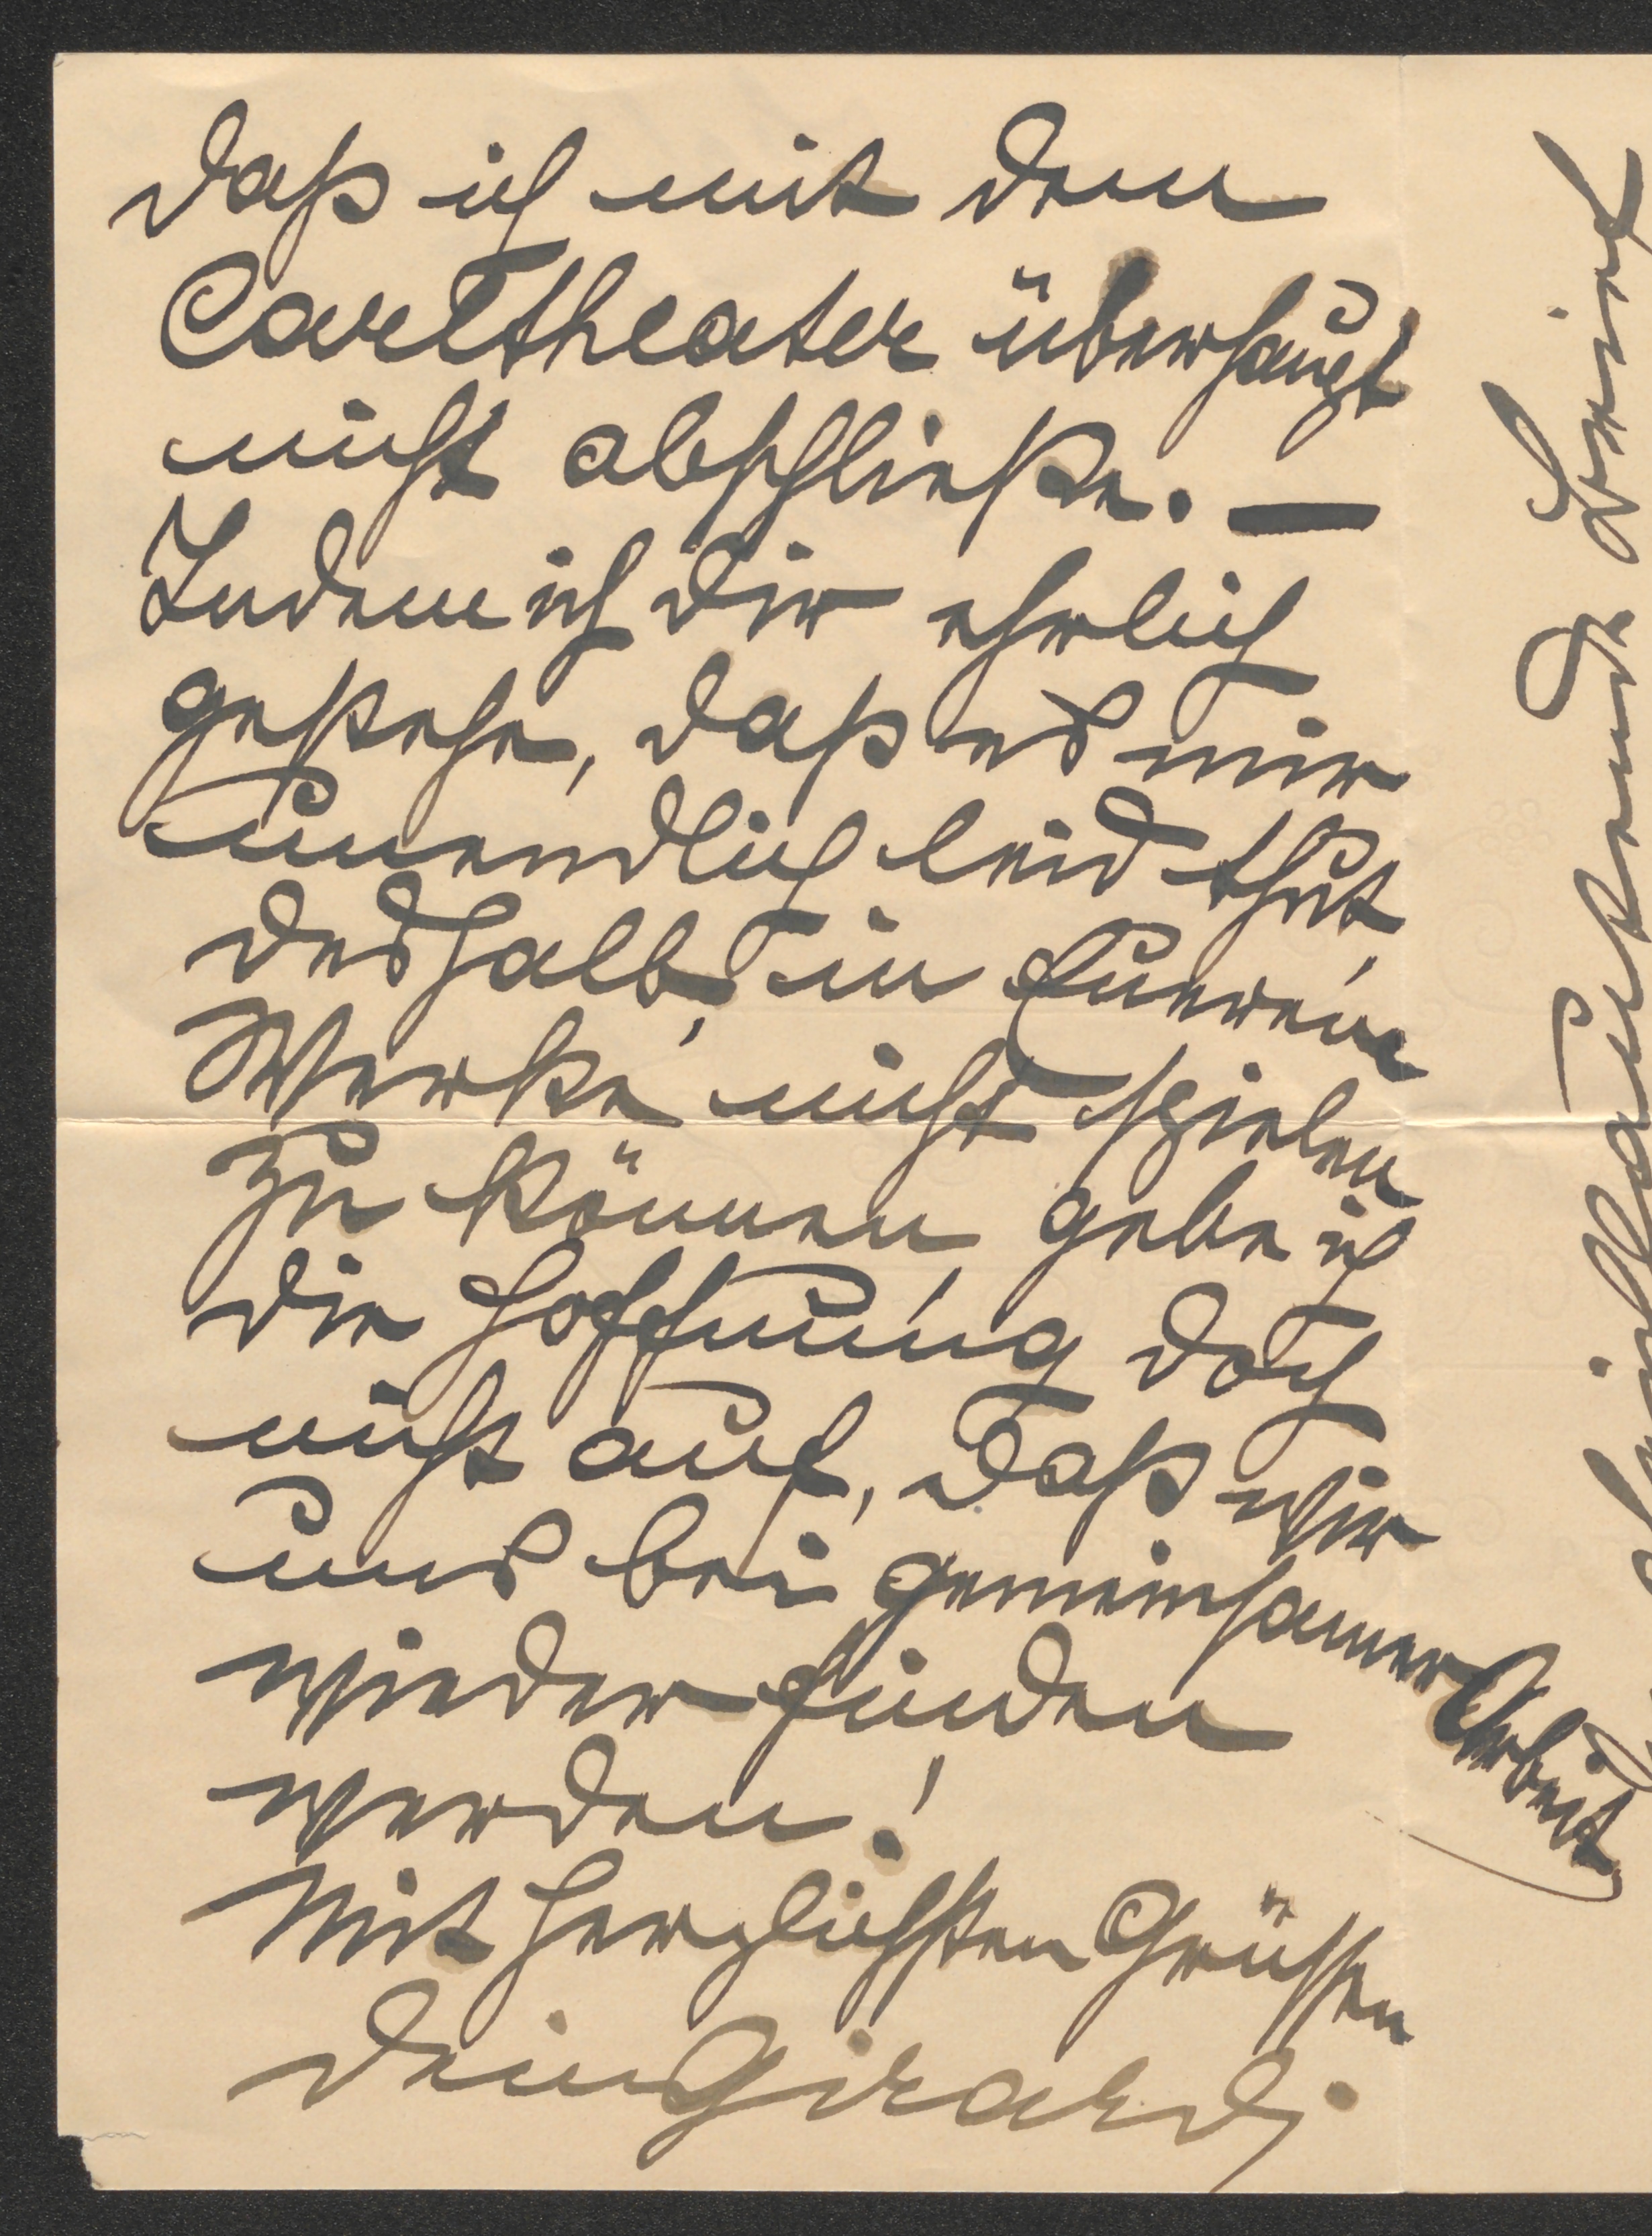 daß ich mit dem
Carltheater überhaupt
nicht abschließe. —
Indem ich Dir ehrlich
gestehe, daß es mir
unendlich leid thut,
deshalb, in Eurem
Werke nicht spielen
zu können, gebe ich
die Hoffnung doch
nicht auf, daß wir
uns bei gemeinsamer Arbeit
wieder finden
werden!
Mit herzlichsten Grüssen
Dein Girardi